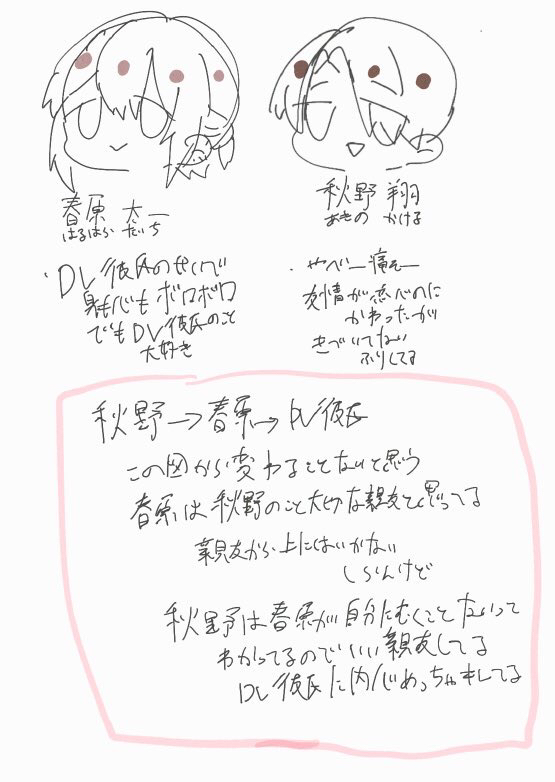 春原 大一
はるはら だいち
・DV彼氏のせいで
身も心もボロボロ
でもDV彼氏のこと
大好き
秋野 翔
あきの かける
・やべー痛そー
友情が恋心のに
かわったが
きづいてない
ふりしてる
秋野→春原→DV彼氏
この図から変わることないと思う
春原は秋野のこと大切な親友と思ってる
親友から上にはいかない
しらんけど
秋野は春原が自分にむくことないって
わかってるのでいい親友してる
DV彼氏に内心めっちゃキレてる